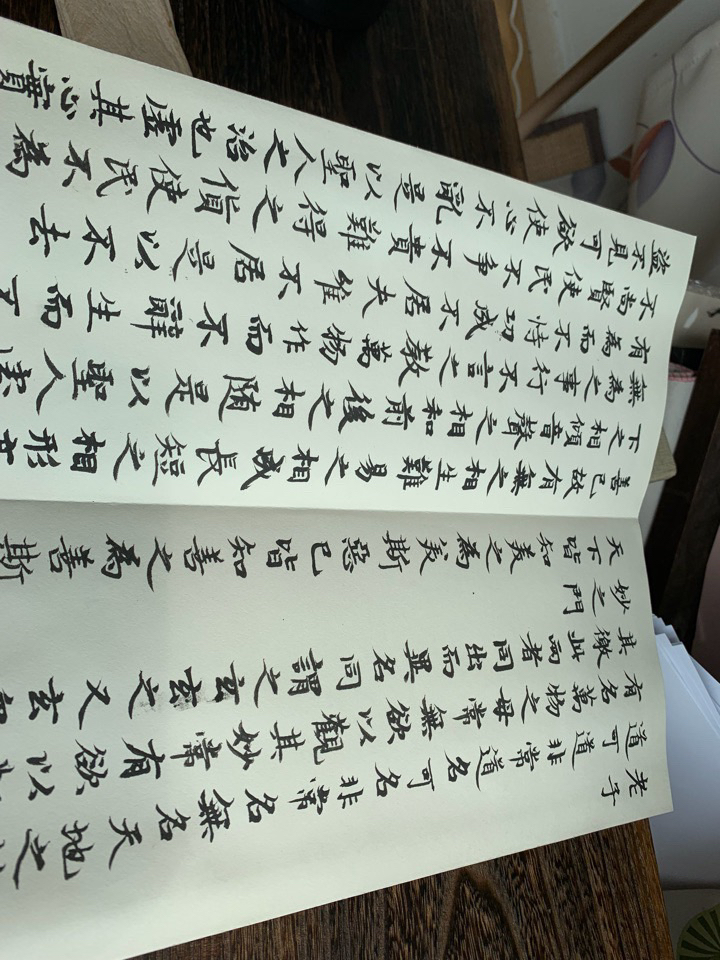 老子
道可道非常道名可名非常名無名天地之
有名萬物之母常無欲以觀其妙常有欲以
其徼此兩者同出而異名同謂之玄玄之又玄
妙之門
天下皆知美之為美斯惡已皆知善之為善斯
善已故有無之相生難易之相成長短之相形
下之相傾音聲之相和前後之相隨是以聖人
無為之事行不言之教萬物作而不辭生而不
有為而不恃功成不居夫維不居是以不去
不尚賢使民不爭不貴難得之貨使民不為
盜不見可欲使心不亂是以聖人之治也虛其心實